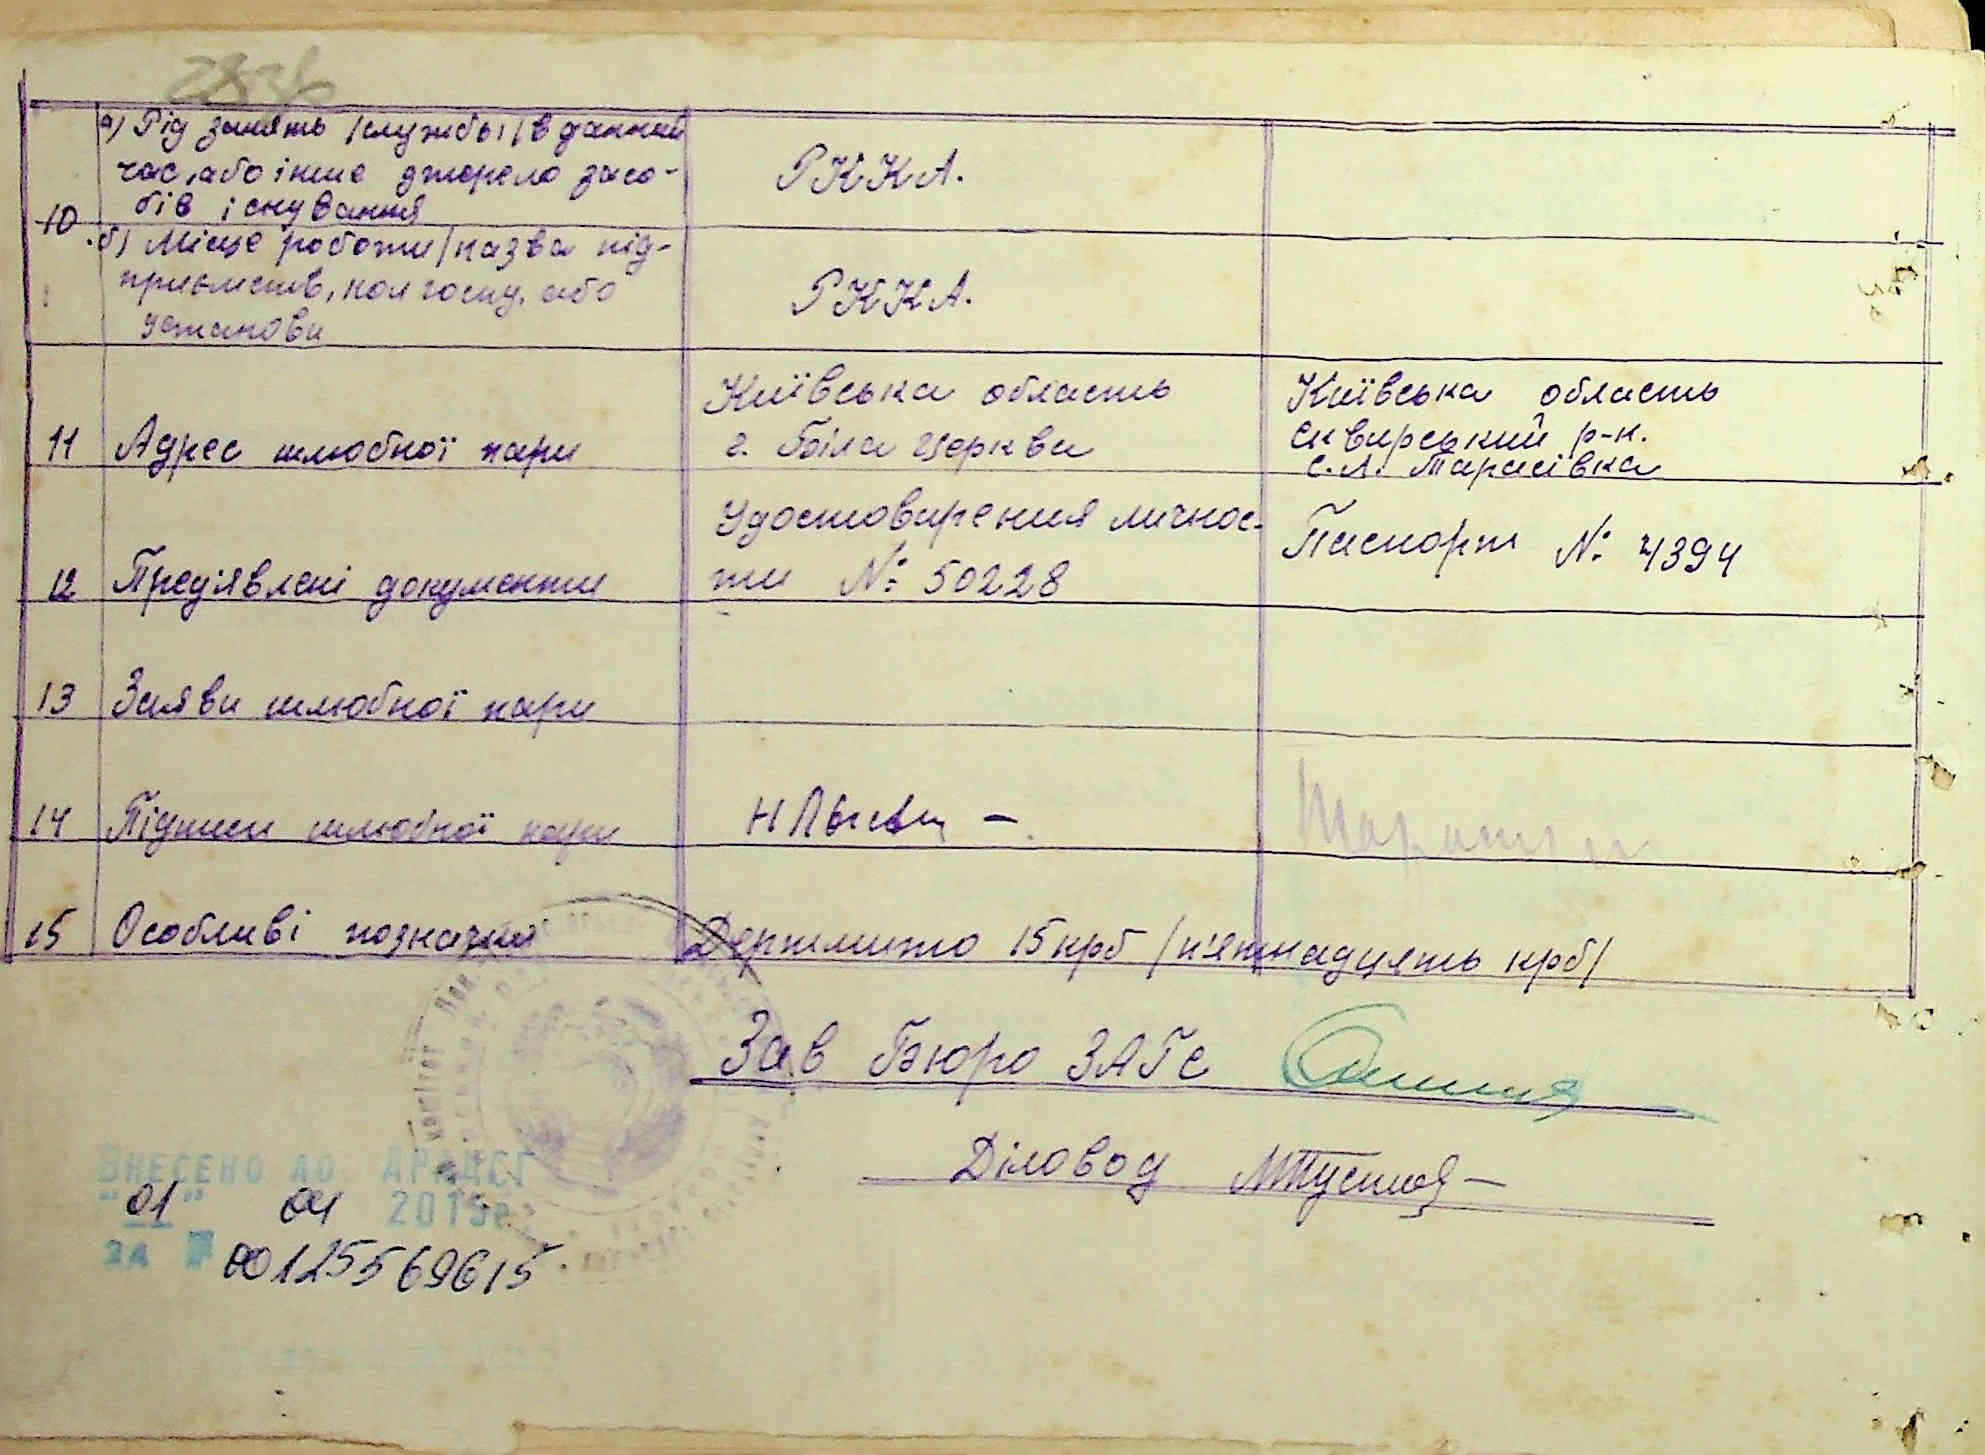 а) Рід занять /служби/ в данний
час, або інше джерело засо-
бів існування
РККА.
10
б) Місце роботи /назва під-
приємств, колгоспу, або
установи
РККА.
11 Адрес шлюбної пари
Київська область
г. Біла Церква
Київська область
Сквирський р-н.
с. Л. Тарасівка
12 Предіявлені документи
Удостовирения личнос-
ти № 50228
Паспорт № 4394
13 Заяви шлюбної пари
14 Підписи шлюбної пари
15 Особливі позначки
Держмито 15 крб /п'ятнадцять крб/
Зав Бюро ЗАГС
Діловод
ВНЕСЕНО ДО ДРАЦСГ
"01" 04 2015р
ЗА № 00125569615.